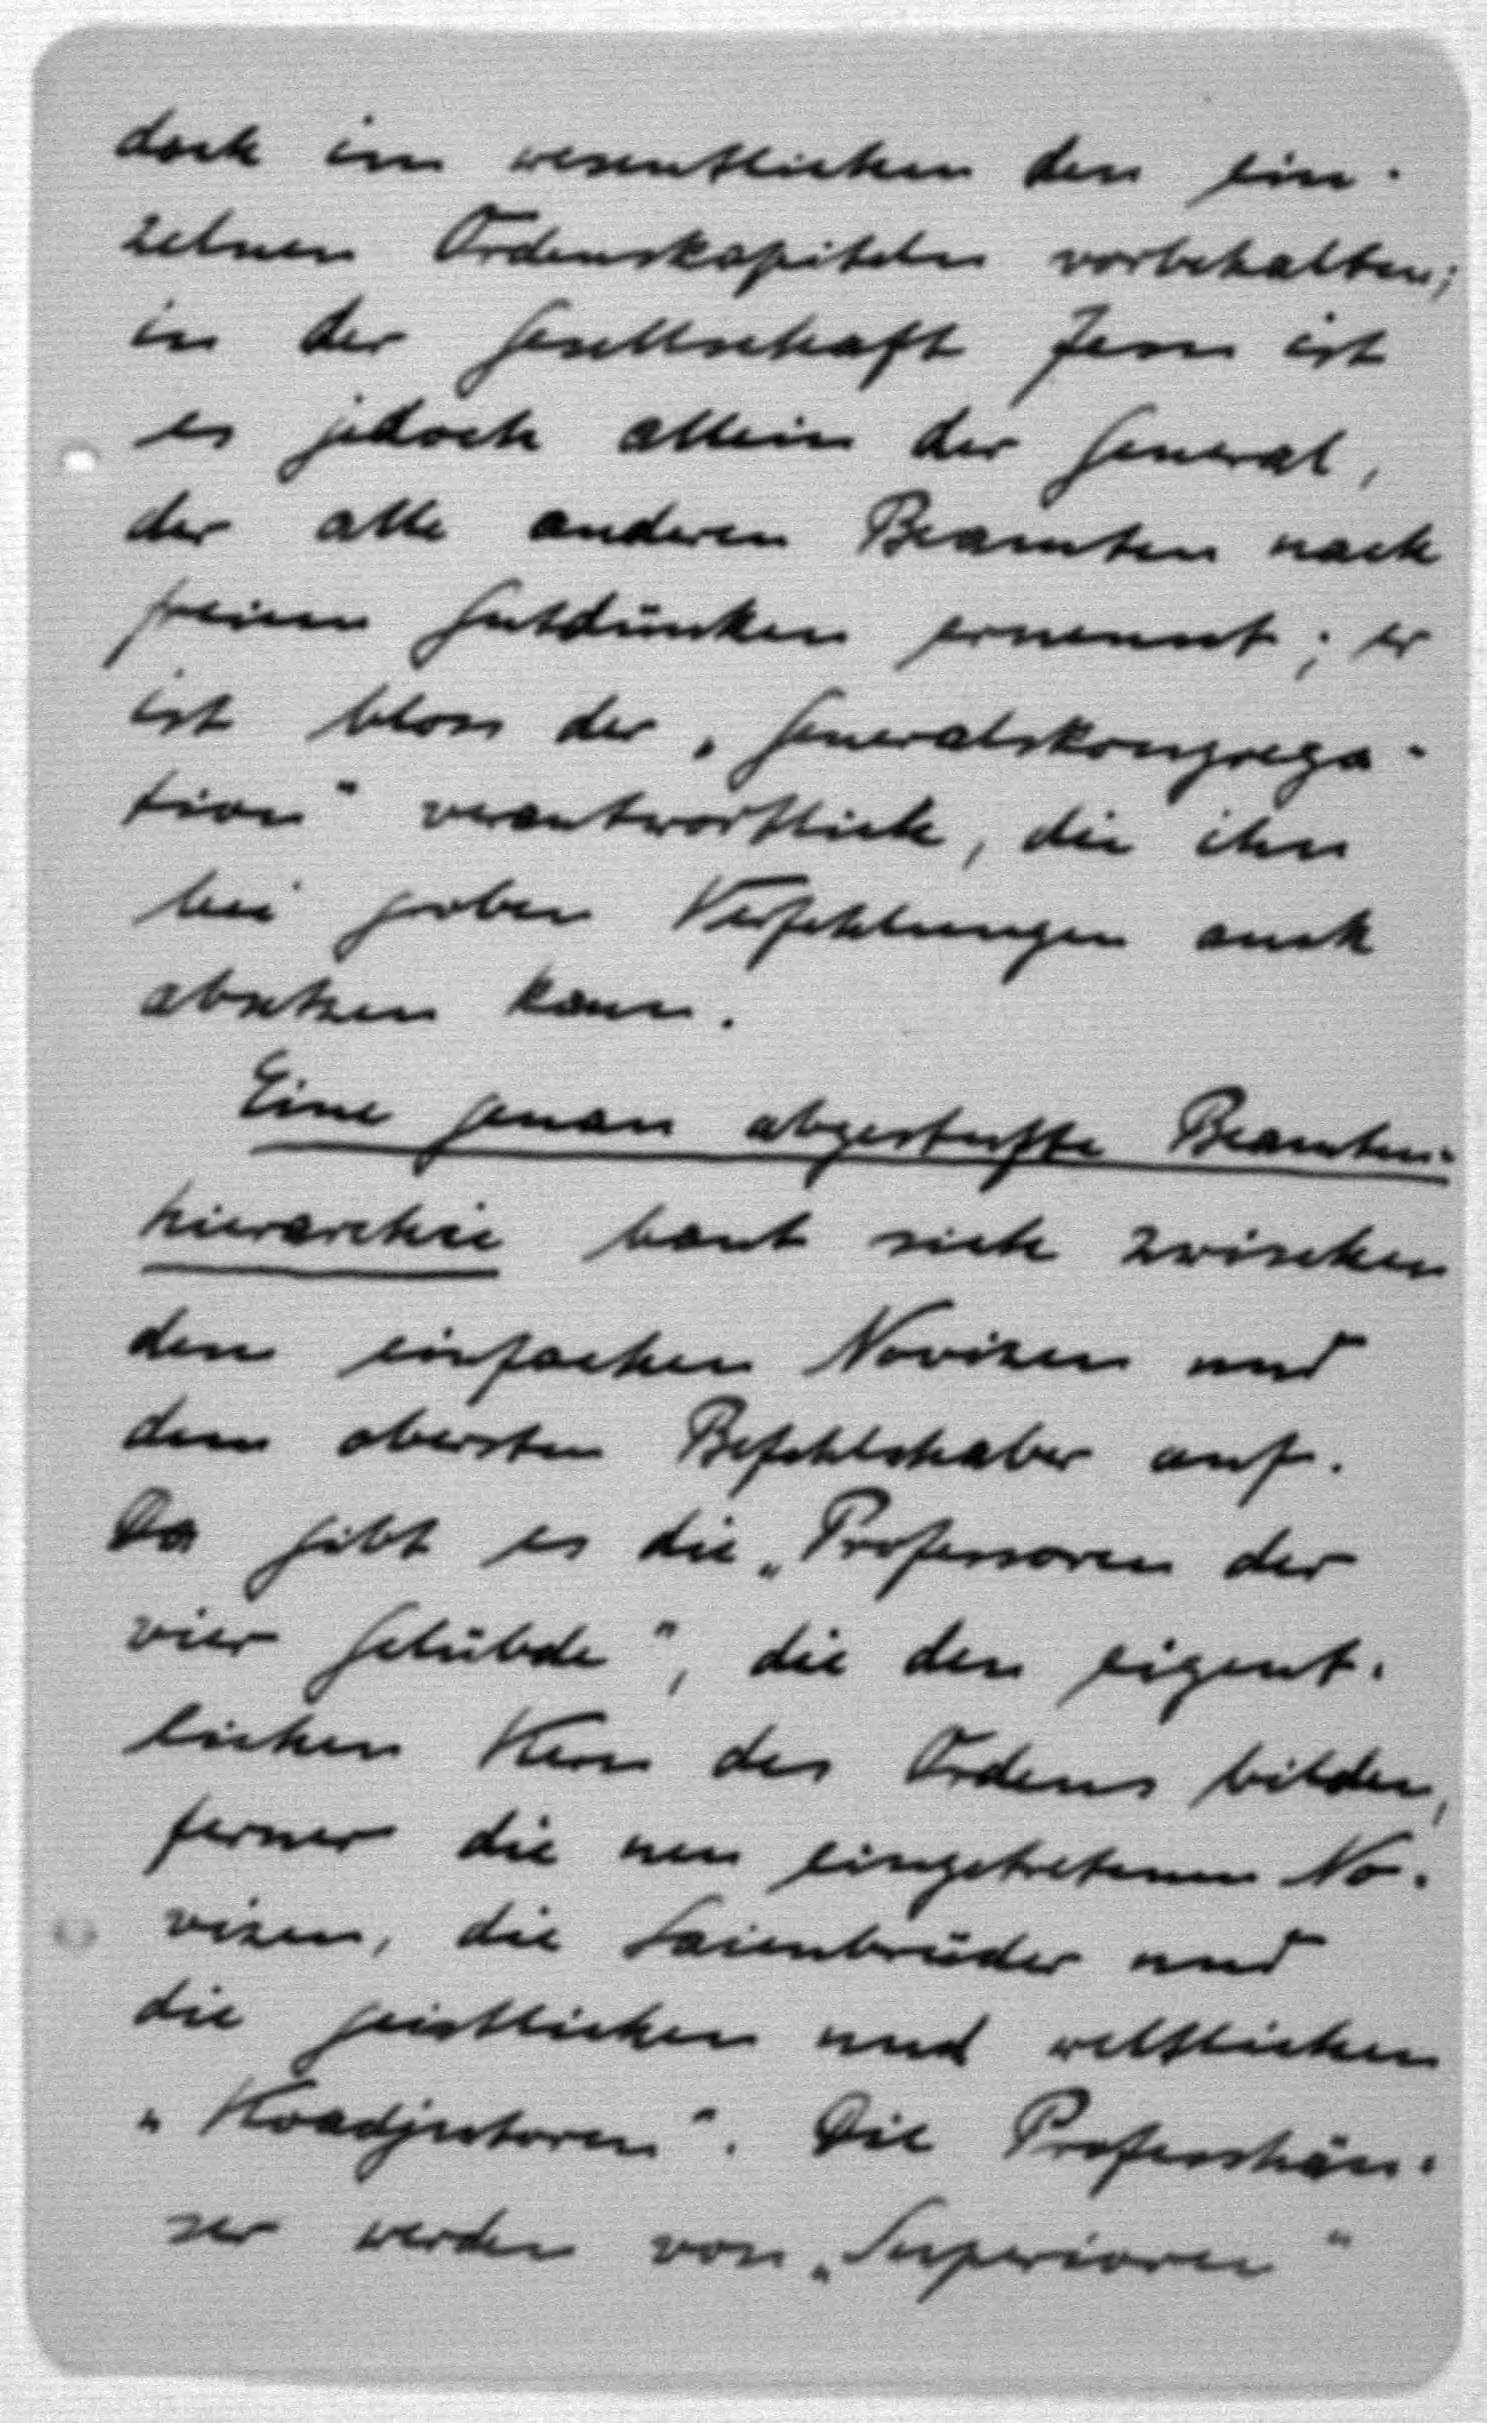 doch im wesentlichen den ein-
zelnen Ordenskapiteln vorbehalten;
in der Gesellschaft Jesu ist
es jedoch allein der General,
der alle anderen Beamten nach
freiem Gutdünken ernennt; er
ist bloss der „Generalskongrega-
tion" verantwortlich, die ihn
bei groben Verfehlungen auch
absetzen kann.
Eine genau abgestufte Beamten-
hierarchie baut sich zwischen
den einfachen Novizen und
dem obersten Befehlshaber auf.
Da gibt es die „Professoren der
vier Gelübde", die den eigent-
lichen Kern des Ordens bilden,
ferner die neu eingetretenen No-
vizen, die Laienbrüder und
die geistlichen und weltlichen
„Koadjutoren". Die Professhäu-
ser werden von „Superioren"